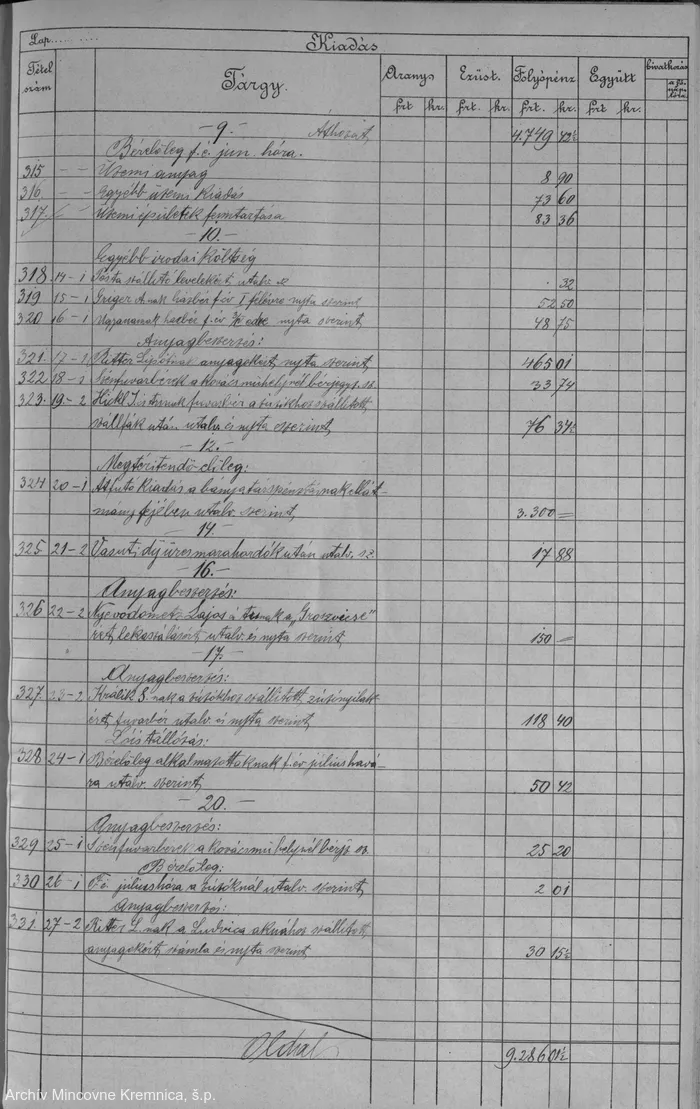 Lap.
Kiadás
Tétel szám Tárgy. Arany Ezüst. Folyópénz Együtt hivatkozás
frt kr. frt. kr. frt. kr. frt. kr.
— 9. — Áthozat, 4.749 42½
Bérelőleg f. é. jun. hóra.
315 – – Üzemi anyag 8 90
316 – – Egyébb üzemi kiadás 73 60
317 – – Üzemi épületek fenntartása 83 36
— 10. —
Egyébb irodai költség
318 14–1 Posta szállitó levelekért utalv. sz . 32
319 15–1 Greger A.nak házbér f. év I felére nyta szerint 52 50
320 16–1 Ugyanannak házbér f. év nyta szerint, 48 75
Anyagbeszerzés:
321 17–1 Ritter Lipótnak anyagokért, nyta szerint, 465 01
322 18–1 Szénfuvarbérek a kovácsműhelynél bérjegyz. sz. 33 74
323 19–2 Hickl fuvarbér a zúzókhoz szállitott,
szálfák után utalv. és nyta szerint, 76 34½
— 12. —
Megtéritendő előleg:
324 20–1 Átfutó kiadás a bányatárspénztárnak ellát-
mány fejében utalv. szerint, 3.300 =
— 14. —
325 21–2 Vasuti dij üres hordók után utalv. sz 17 88
— 16. —
Anyagbeszerzés:
326 22–2 Lajos a
utalv. és nyta szerint, 150 =
— 17. —
Anyagbeszerzés:
327 23–2 Králik S. nak a zúzókhoz szállitott zúzónyilak-
ért, fuvarbér utalv. és nyta szerint, 118 40
328 24–1 Bérelőleg alkalmazottaknak f. év julius havá-
ra utalv. szerint, 50 42
— 20. —
Anyagbeszerzés:
329 25–1 Szénfuvarberek a kovácsműhelynél bérj. sz. 25 20
Bérelőleg:
330 26–1 F. é. julius hóra a zúzóknál utalv. szerint, 2 01
Anyagbeszerzés:
331 27–2 Ritter L. nak a Ludvica aknához szállitott,
anyagokért számla és nyta szerint 30 15½
Oldal 9.286 01½
Archív Mincovne Kremnica, š.p.